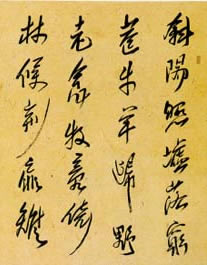 斜陽照墟落窮
巷牛羊歸野
老念牧童倚
杖候荊扉雉